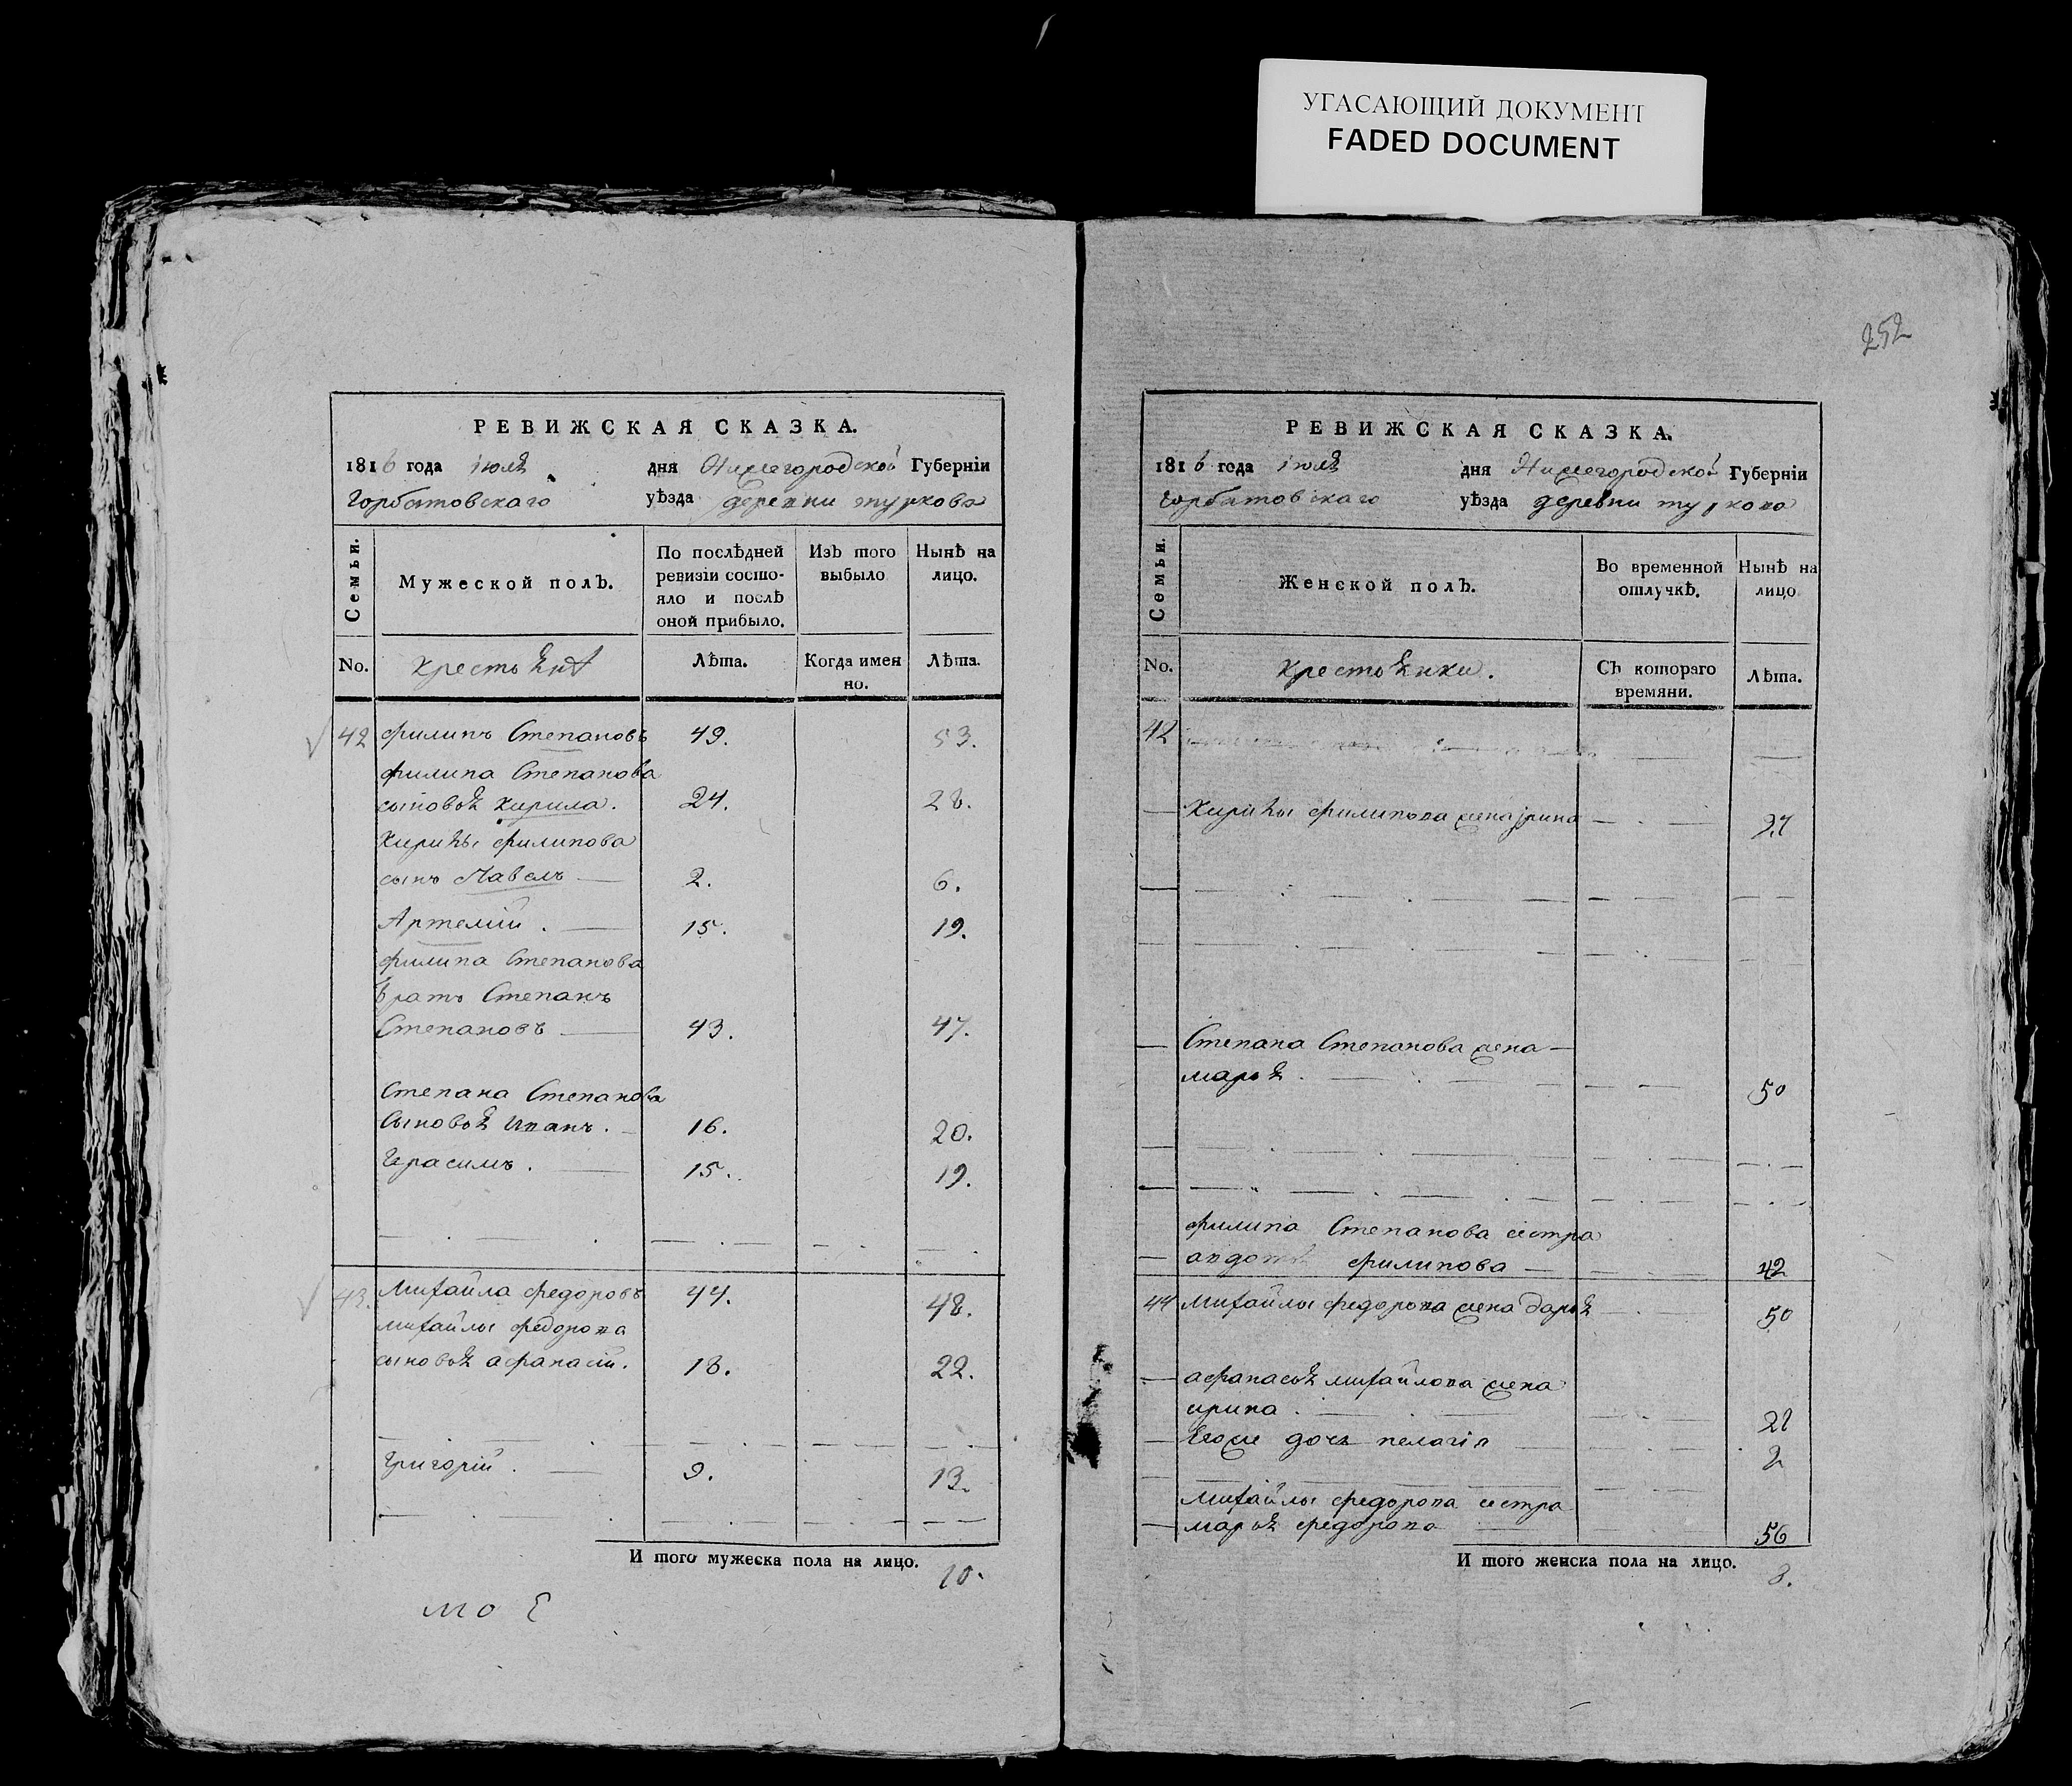 УГАСАЮЩИЙ ДОКУМЕНТ
FADED DOCUMENT
РЕВИЖСКАЯ СКАЗКА.
1816 года іюля дня Нижегородской Губерніи
Горбатовскаго уѣзда деревни туркова
Семьи.
Мужеской полъ.
По послѣдней ревизіи состояло и послѣ оной прибыло.
Изъ того выбыло
Нынѣ на лицо.
No.
крестьянѣ
Лѣта.
Когда имен но.
Лѣта.
42 филипъ Степановъ 49. 53.
филипа Степанова
сыновья кирила. 24. 28.
Кирилы филипова
сынъ Павелъ 2. 6.
Артемій. 15. 19.
филипа Степанова
братъ Степанъ
Степановъ 43. 47.
Степана Степанова
Сыновья иванъ. 16. 20.
Герасимъ. 15. 19.
43. Михайла федоровъ 44. 48.
михайлы федорова
сыновья афанасій. 18. 22.
Григорій. 9. 13.
И того мужеска пола на лицо. 10.
мо
252
РЕВИЖСКАЯ СКАЗКА.
1816 года іюля дня Нижегородской Губерніи
Горбатовскаго уѣзда деревни туркова
Семьи.
Женской полъ.
Во временной отлучкѣ.
Нынѣ на лицо
No.
крестьянки.
Съ котораго времяни.
Лѣта.
42
Кирилы филипова жена ірина 27
Степана Степанова жена
марья 50
филипа Степанова сестра
авдотья филипова 42
44 Михайлы федорова жена дарья 50
афанасья михайлова жена
ирина 22
Егоже дочь пелагія 2
михайлы федорова сестра
марья федорова 56
И того женска пола на лицо. 8.